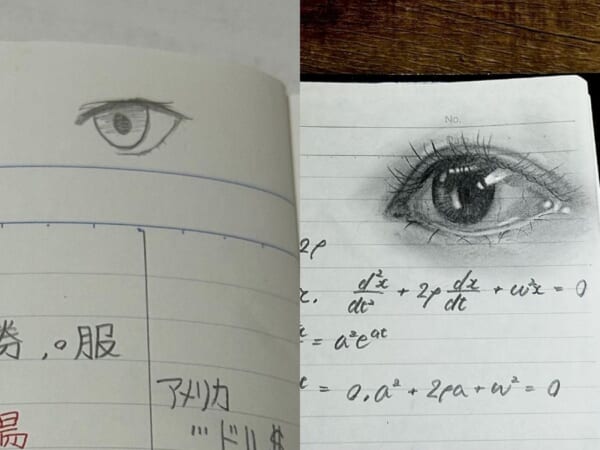 券,。服
アメリカ
… ドル $
No.
2ρ
d²x/dt² + 2ρ dx/dt + ω²x = 0
= a²eᵃᵗ
= 0, a² + 2ρa + ω² = 0